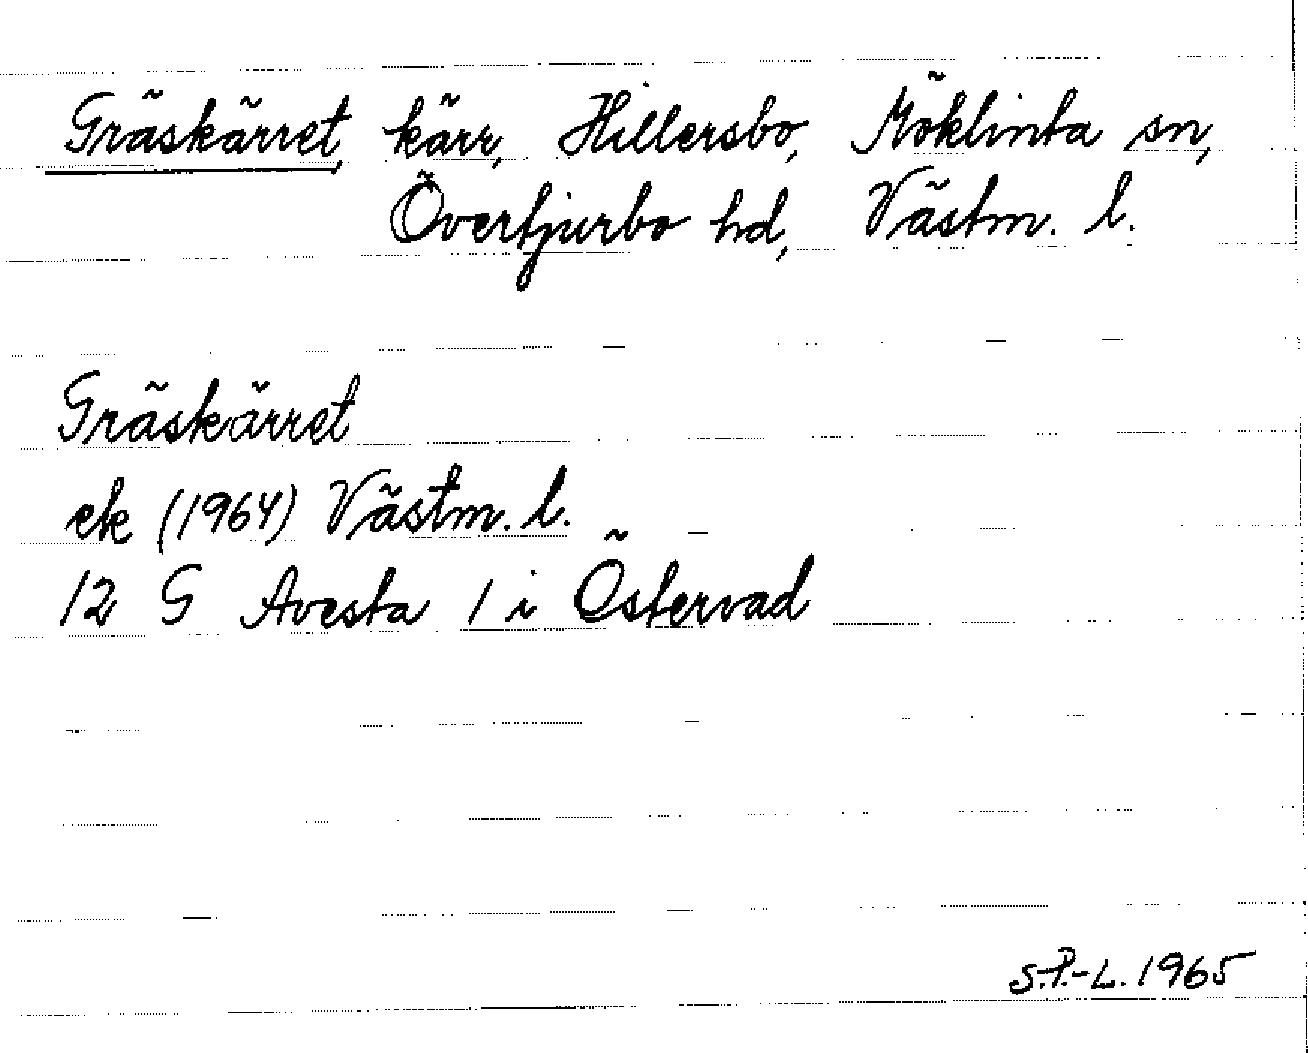 Gräskärret, kärr, Hillersbo, Möklinta sn,
Övertjurbo hd, Västm. l.
Gräskärret
ek (1964) Västm. l.
12 G Avesta 1 i Östervad
S.P.-L. 1965